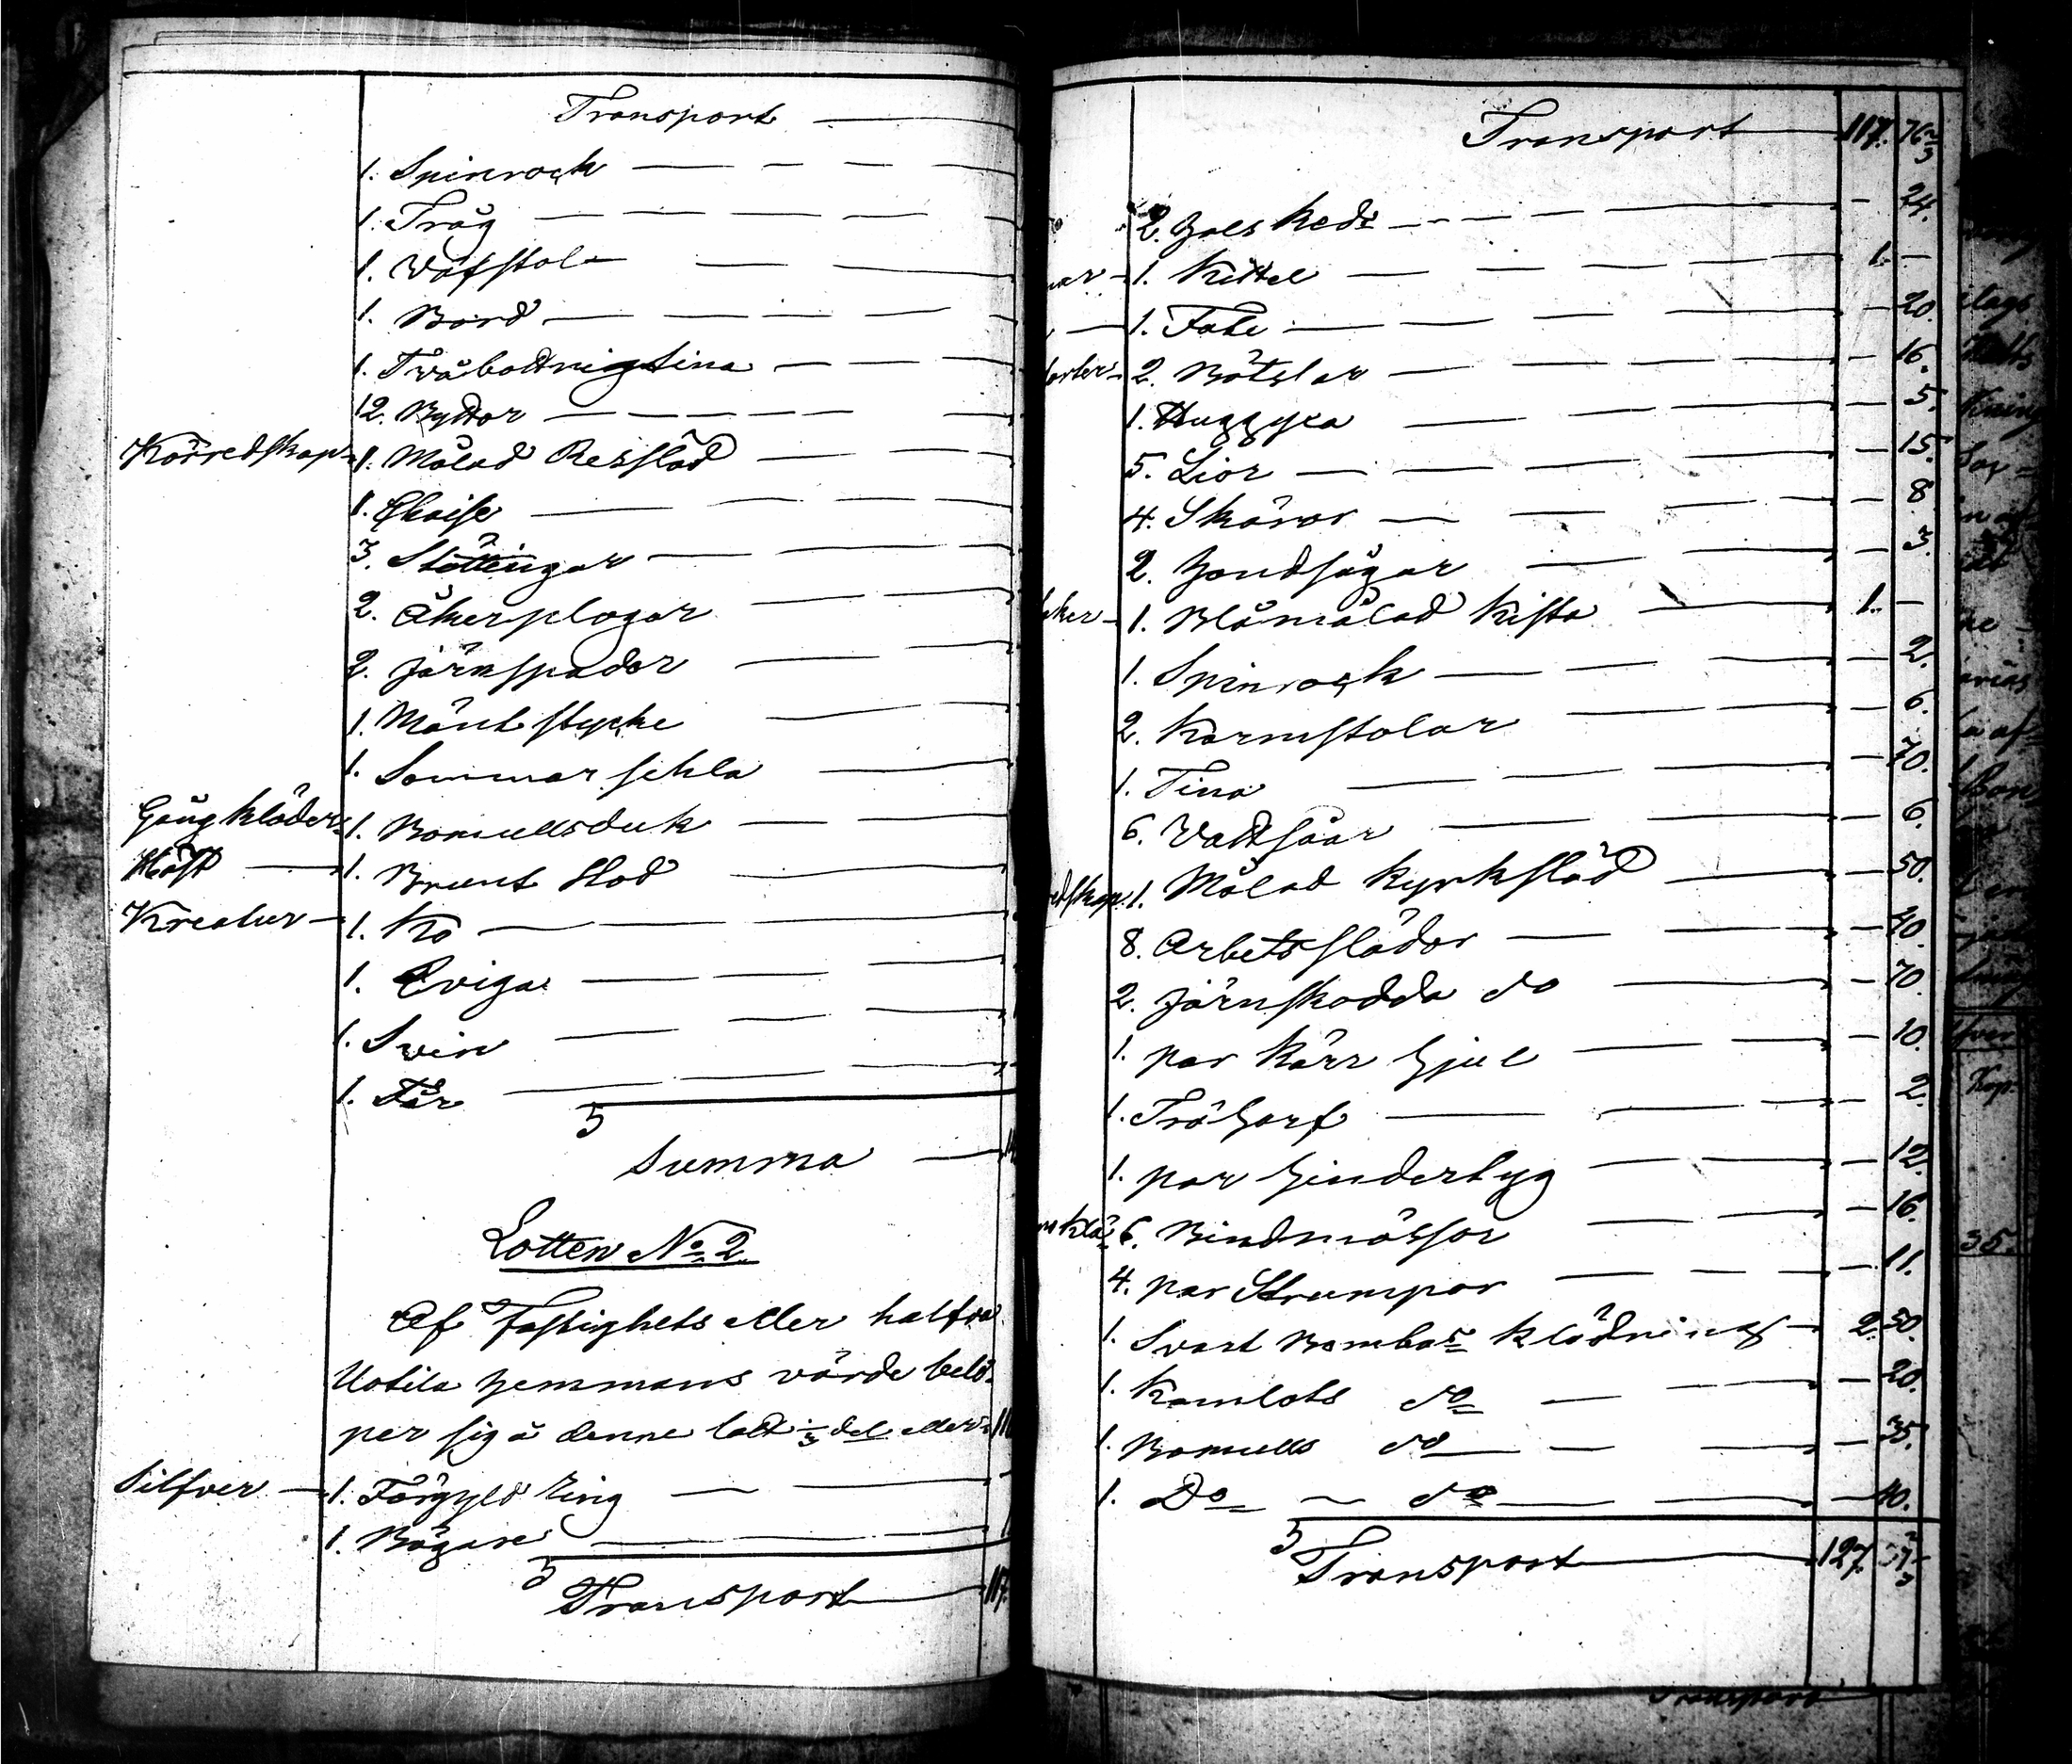 Transport
1. Spinrock
1. Tråg
1. Wäfstol
1. Bord
1. Tvåbottnig tina
12. Byttor
Körredskap 1. Målad Ressläd
1. Chaise
3. Stöttingar
2. Åkerplogar
2. järnspador
1. Mönt stycke
1. Sommar sehla
Gångkläder 1. Bomullsduk
Häst 1. Brunt Stod
Kreatur 1. Ko
1. Qviga
1. Svin
1. Får
Summa
Lotten No 2.
Af Fastighets eller halfva
Uotila hemmans värde belö-
per sig å denne lott 1/3 del eller
Silfver 1. Förgyld ring
1. Bägare
Transport 117.
Transport 117. 76 2/3
2. Halskedr 24.
1. Kittel 1. –
1. Fate 20.
2. Båtslar 16.
1. Huggyxa 5.
5. Lior 15.
4. Skäror 8.
2. Handsågar 3.
1. Blåmålad Kista 1. –
1. Spinrock 2.
2. Karmstolar 6.
1. Tina 70.
6. Vattsåar 6.
1. Målad Kyrksläd 50.
8. Arbetsslädor 40.
2. järnskodda do 70.
1. par Kärr hjul 10.
1. Träharf 2.
1. par hindertyg 12.
6. Bindmössor 16.
4. par Strumpor 11.
1. Svart Bombas klädning 2. 50.
1. Kamlots do 20.
1. Bomulls do 35.
1. Do do 40.
Transport 127.